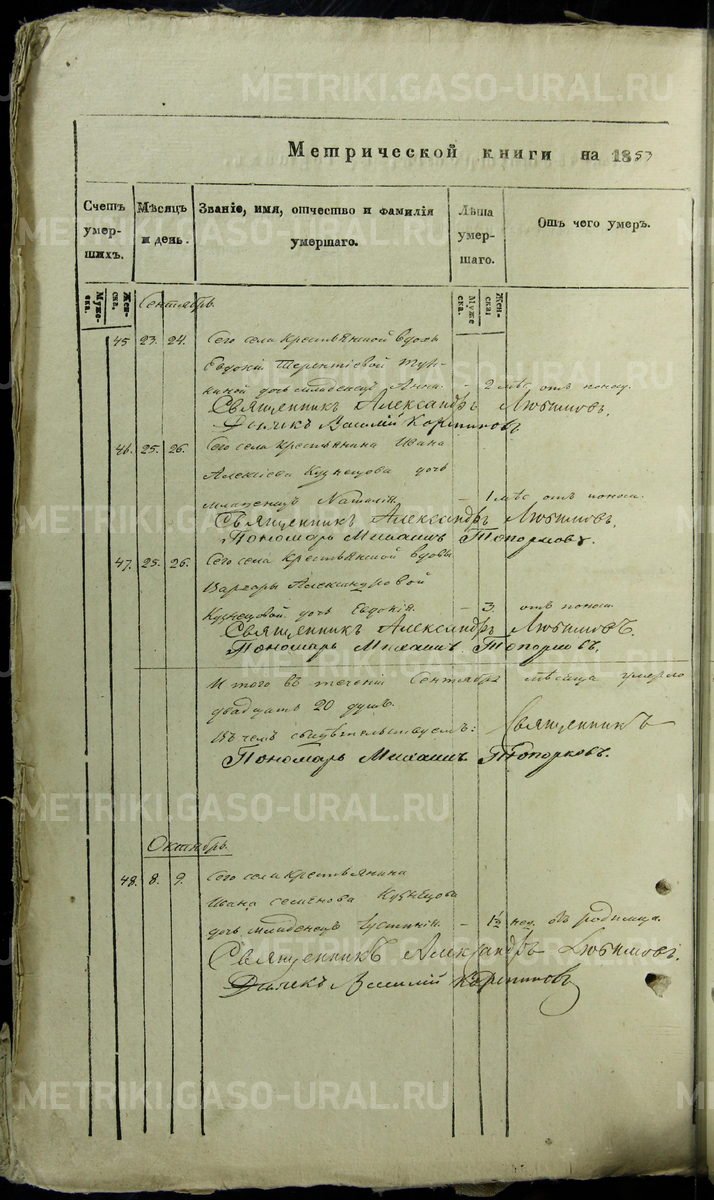 Метрической книги на 1853
Счетъ умер-шихъ.
Мѣсяцъ и день.
Званіе, имя, отчество и фамилія умершаго.
Лѣта умер-шаго.
Отъ чего умеръ.
Муже-ска.
Жен-ска.
Муже ска.
Жен-ска.
Сентябрь.
45 23. 24. Сего села крестьянской вдовы
Евдокіи Терентіевой
дочь младенецъ Анна. – 2 мѣс. отъ поносу.
Священникъ Александръ Любимовъ.
Дьячекъ Василій
46. 25. 26. Сего села крестьянина Ивана
Алексѣева Кузнецова дочь
младенецъ Наталія. – 1 мѣс. отъ поноса.
Священникъ Александръ Любимовъ.
Пономарь Михаилъ Топорковъ.
47. 25. 26. Сего села крестьянской вдовы
Варвары Александровой
Кузнецовой дочь Евдокія. – 3. отъ поноса.
Священникъ Александръ Любимовъ.
Пономарь Михаилъ Топорковъ.
Итого въ теченіи Сентября мѣсяца умерло
двадцать 20 душъ.
Въ чемъ свидѣтельствуемъ: Священникъ
Пономарь Михаилъ Топорковъ.
Октябрь.
48. 8. 9. Сего села крестьянина
Ивана Семенова Кузнецова
дочь младенецъ Іустинія. – 1½ нед. родимца.
Священникъ Александръ Любимовъ.
Дьячекъ Василій
METRIKI.GASO-URAL.RU